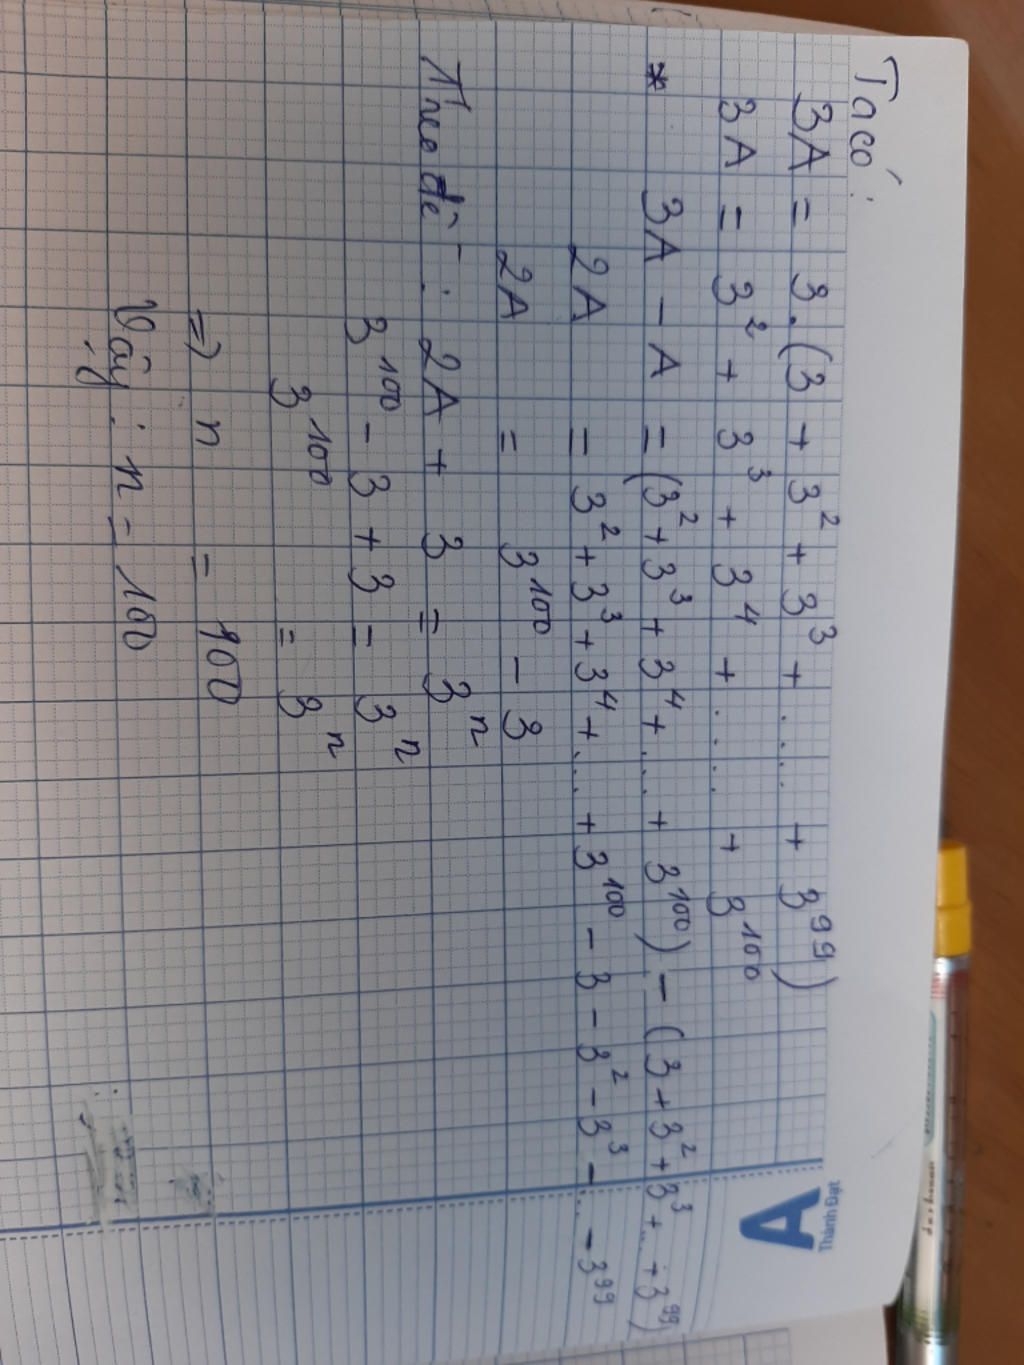 Ta có:
3A = 3.(3 + 3² + 3³ + .... + 3⁹⁹)
3A = 3² + 3³ + 3⁴ + .... + 3¹⁰⁰
* 3A - A = (3² + 3³ + 3⁴ + ... + 3¹⁰⁰) - (3 + 3² + 3³ + ... + 3⁹⁹)
2A = 3² + 3³ + 3⁴ + ... + 3¹⁰⁰ - 3 - 3² - 3³ - ... - 3⁹⁹
2A = 3¹⁰⁰ - 3
Theo đề: 2A + 3 = 3ⁿ
3¹⁰⁰ - 3 + 3 = 3ⁿ
3¹⁰⁰ = 3ⁿ
=> n = 100
Vậy: n = 100
A
Thành Đạt